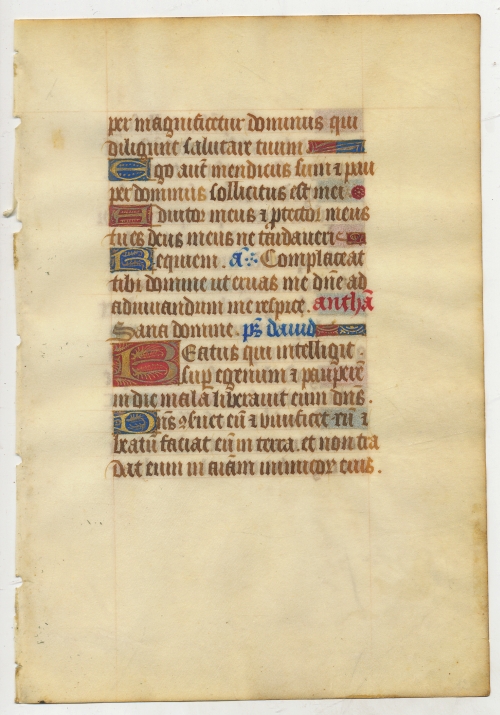 per magnificetur dominus qui
diligunt salutare tuum.
Ego aut̄ mendicus sum ⁊ pau
per dominus sollicitus est mei
Adiutor meus ⁊ ꝓtector meus
tu es deus meus ne tardaueris
Requiem. a᷉. Complaceat
tibi domine ut eruas me dn̄e ad
adiuuandum me respice. anthā
Sana domine. ps̄ dauid
Beatus qui intelligit
sup̄ egenum ⁊ pauperē
in die mala liberauit eum dn̄s.
Dn̄s ꝯseruet eū ⁊ viuificet eū ⁊
beatū faciat eū in terra. et non tra
dat eum in aīam inimicoꝝ eius.